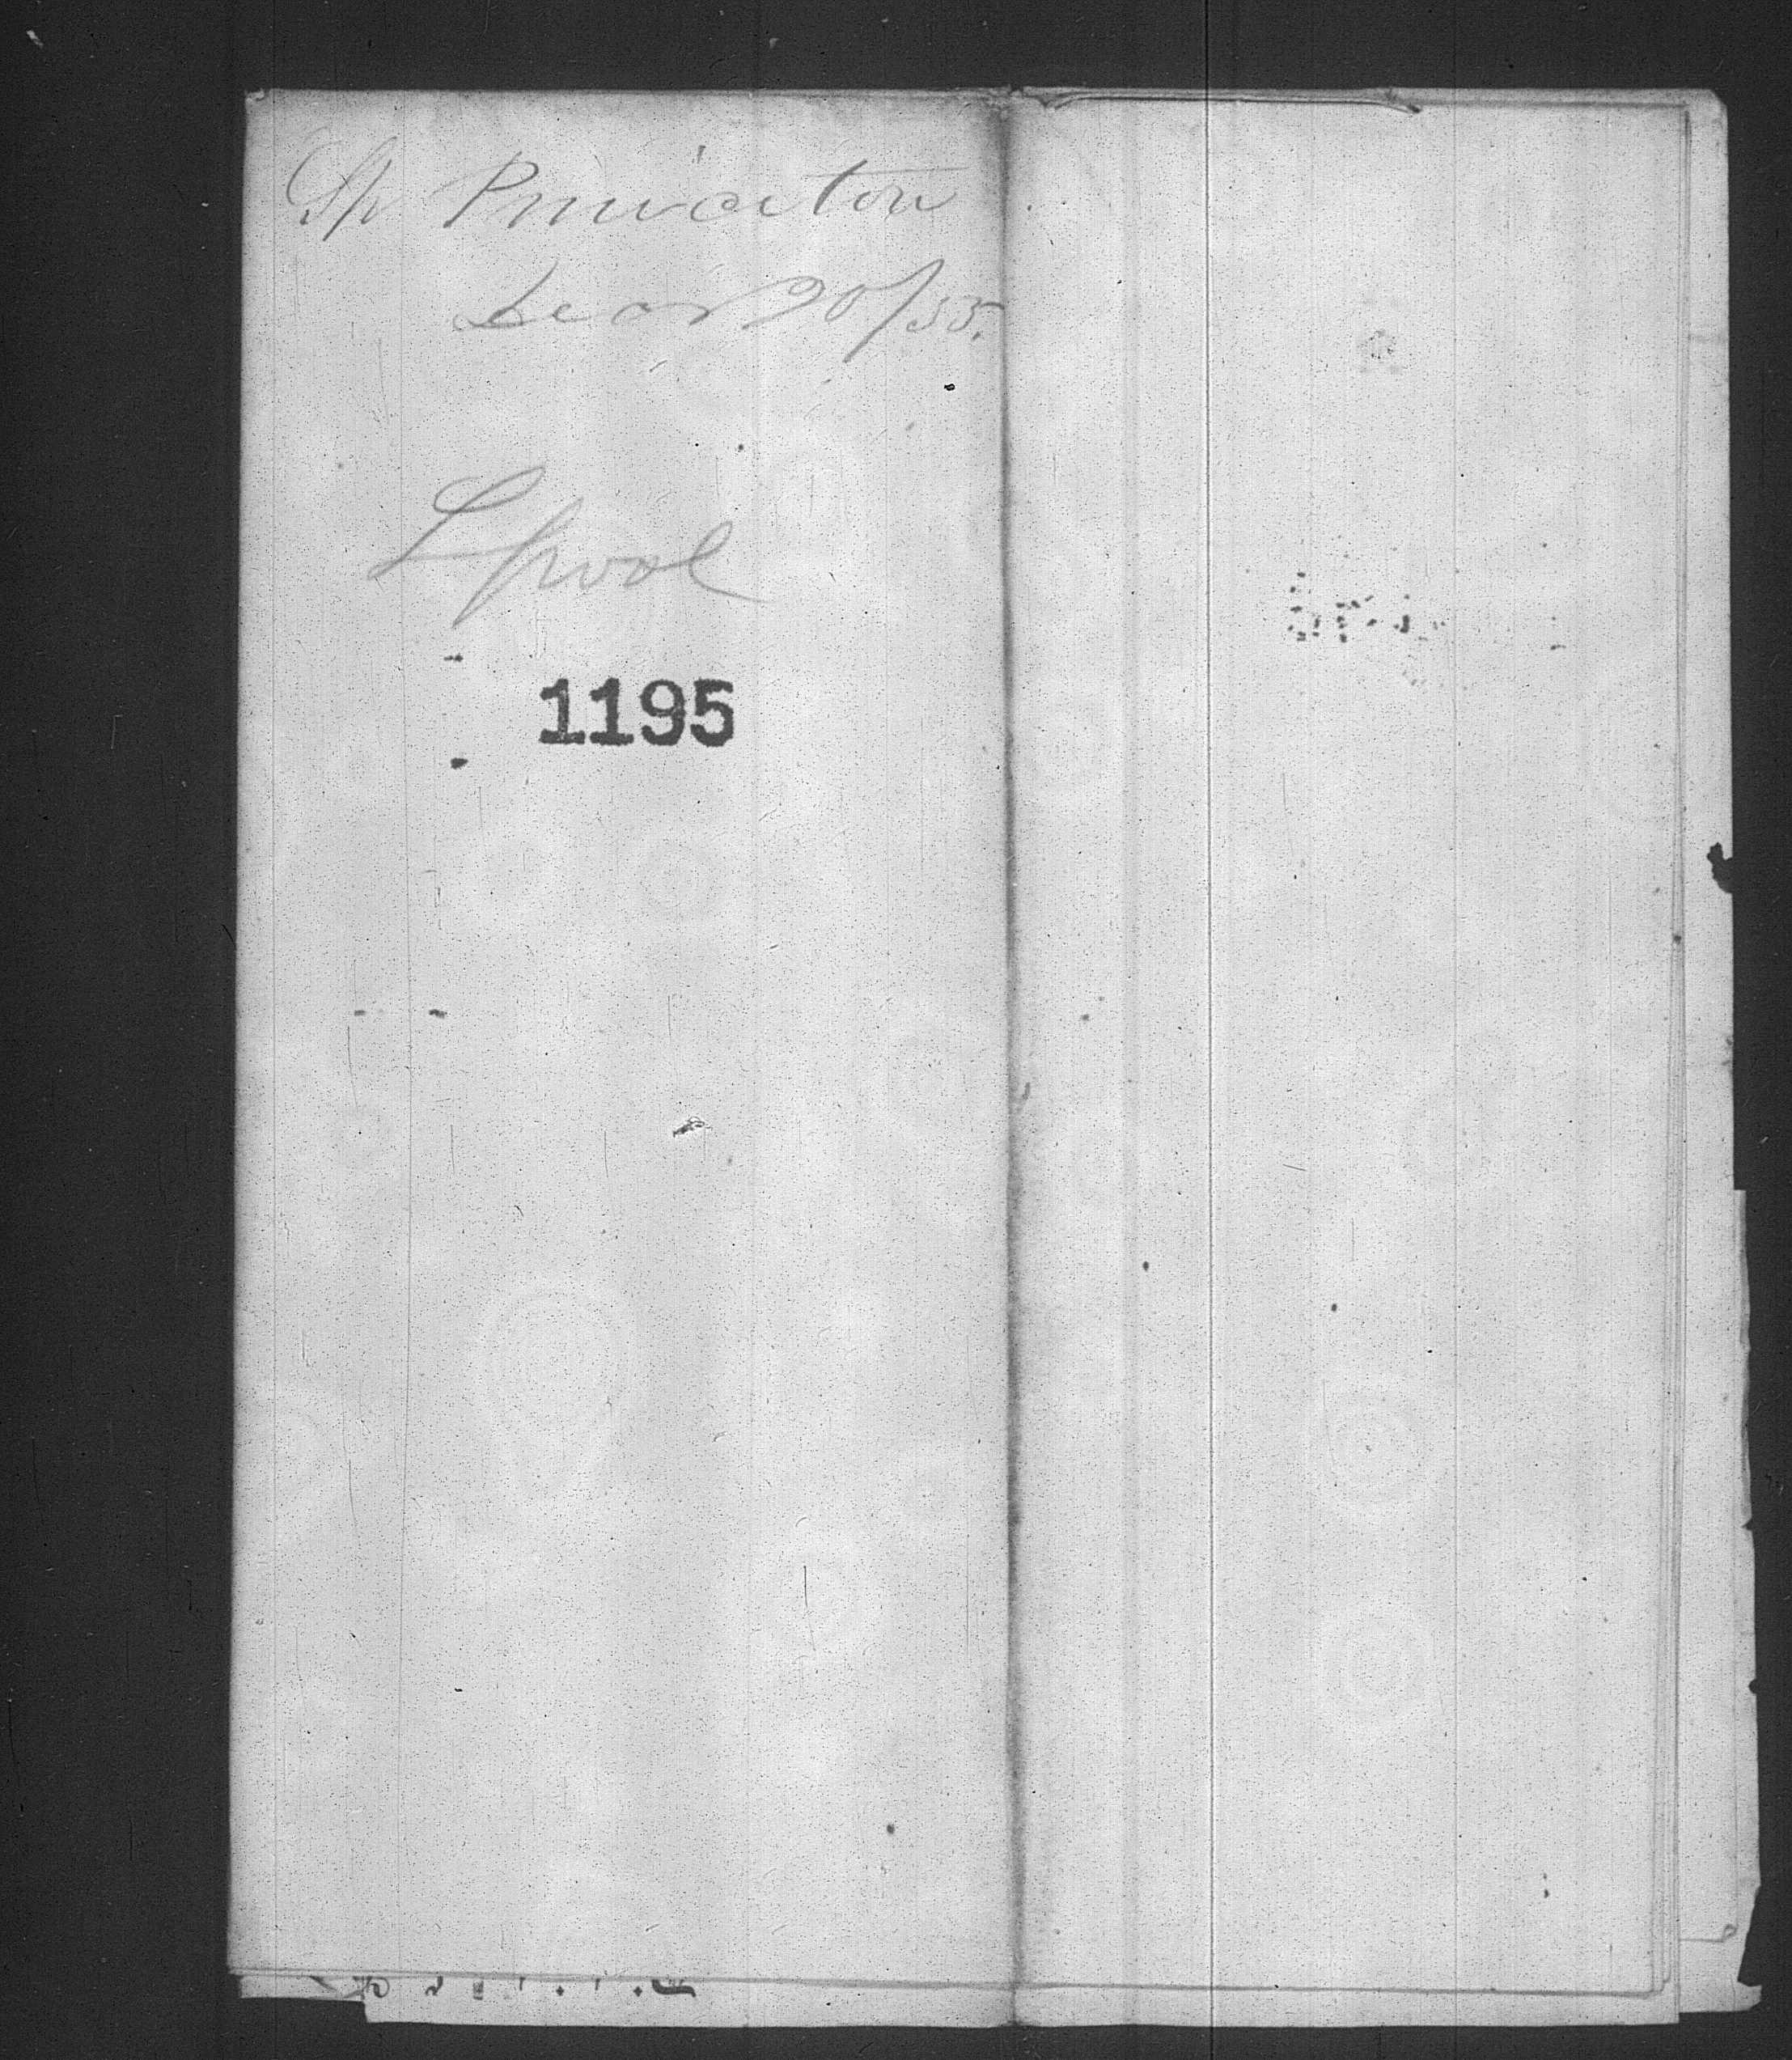 Sh Princeton
Decr 20/55.
Lpool
1195